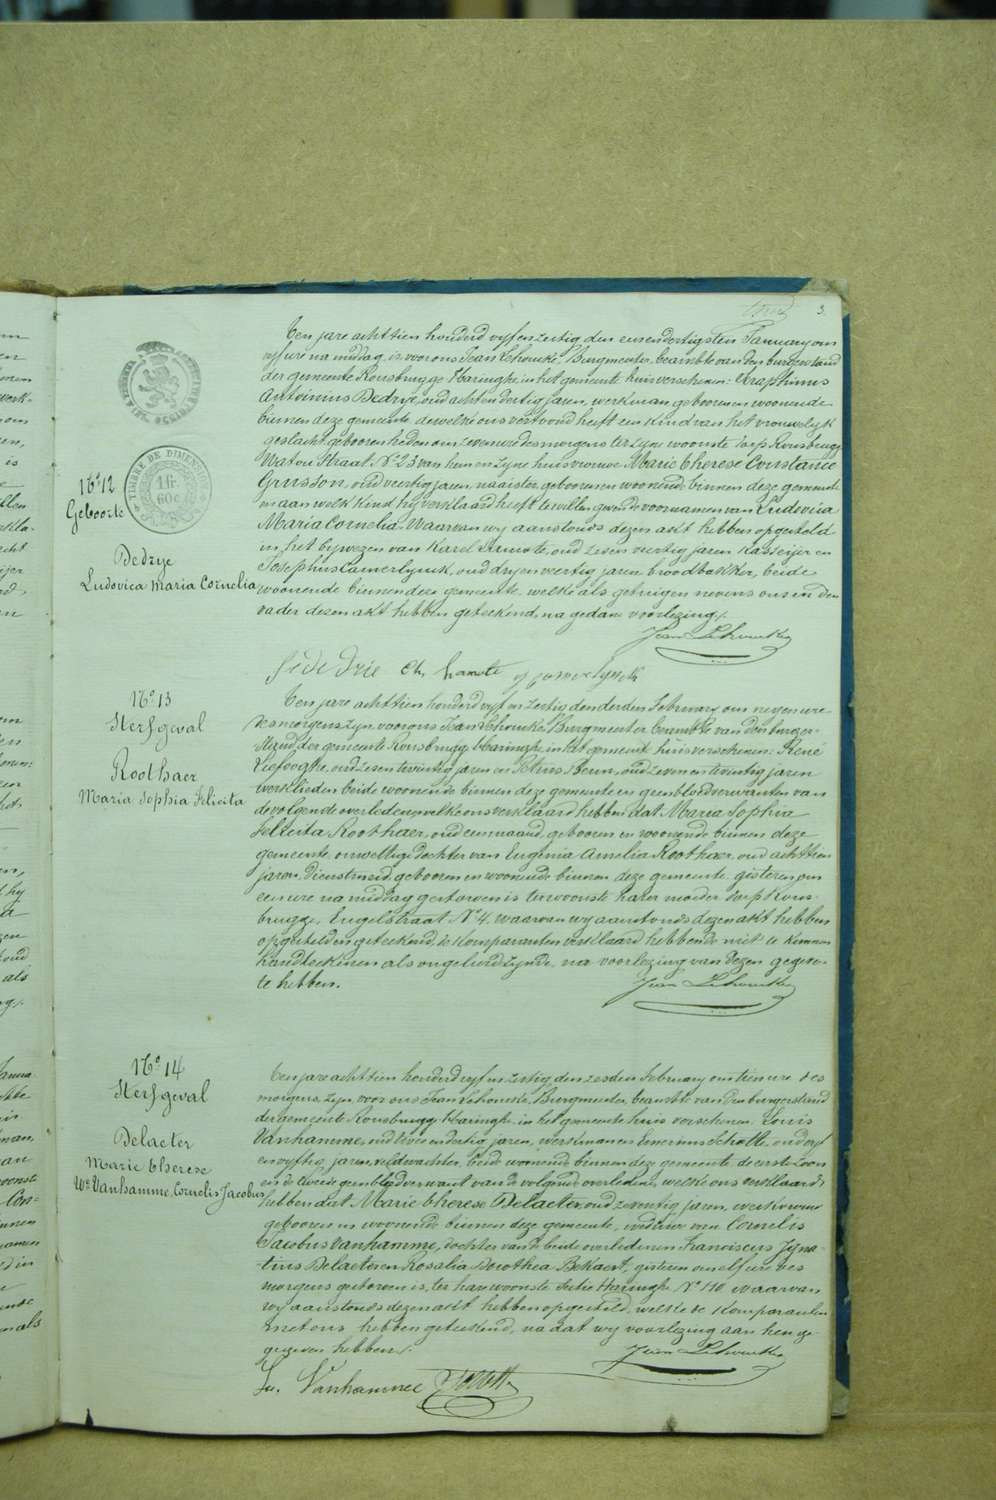 3.
TIMBRE DE DIMENSION
N° 12
Geboorte
Dedrye
Ludovica Maria Cornelia
Ten jare achttien honderd vyf en zestig den een en dertigsten January om
vyf ure na middag, is voor ons Jean Lehoucke, Burgmeester, beambte van den burgerstand
der gemeente Rousbrugge Haringhe, in het gemeente huis verschenen: Seraphinus
Antonius Dedrye, oud acht en dertig jaren, werkman geboren en woonende
binnen deze gemeente dewelke ons vertoond heeft een kind van het vrouwelyk
geslacht geboren heden om zeven ure des morgens ter zyne woonste dorp Rousbrugge
Watou Straat N° 23 van hem en zyne huisvrouwe Marie Therese Constance
Grusson, oud veertig jaren, naaister, geboren en woonende binnen deze gemeente
en aan welk kind hy verklaard heeft te willen geven de voornamen van Ludovica
Maria Cornelia. Waarvan wy aanstonds dezen akt hebben opgesteld
in het bywezen van Karel Hamote, oud zeven veertig jaren kasseijer en
Josephus Camerlynck, oud dry en veertig jaren broodbakker, beide
woonende binnen deze gemeente, welke als getuigen nevens ons en den
vader dezen akt hebben geteekend, na gedane voorlezing.
Jean Lehoucke
N° 13
Sterfgeval
Roothaer
Maria Sophia Felicita
Ten jare achttien honderd vyf en zestig den derden February om negen ure
des morgens zyn voor ons Jean Lehoucke Burgmeester beambte van den burger-
stand der gemeente Rousbrugg Haringhe, in het gemeente huis verschenen: René
oud zesen twintig jaren en Petrus oud zeven en twintig jaren
werklieden beide woonende binnen deze gemeente en geen bloedverwanten van
de volgende overledene, welke ons verklaard hebben dat Maria Sophia
Felicita Roothaer, oud een maand, geboren en woonende binnen deze
gemeente, onwettige dochter van Eugenia Amelia Roothaer, oud achttien
jaren, dienstmeid, geboren en woonende binnen deze gemeente, gisteren om
een ure na middag gestorven is ter woonste harer moeder dorp Rous-
brugge, Engelstraat N° 4. waarvan wy aanstonds dezen akt hebben
opgesteld en geteekend, de komparanten verklaard hebbende niet te kunnen
handteekenen als ongeleerd zynde, na voorlezing van dezen gegeven
te hebben.
Jean Lehoucke
N° 14
Sterfgeval
Delaeter
Marie Therese
We Vanhamme, Cornelis Jacobus
Ten jare achttien honderd vyf en zestig den zesden February om tien ure des
morgens, zyn voor ons Jean Lehoucke, Burgmeester, beambte van den burgerstand
der gemeente Rousbrugg Haringhe, in het gemeente huis verschenen: Louis
Vanhamme, oud twee en dertig jaren, werkman en Scholte, oud vyf
en vyftig jaren, veldwachter, beide woonende binnen deze gemeente de eerste zoon
en de tweede geen bloedverwant van de volgende overledene, welke ons verklaard
hebben dat Marie Therese Delaeter, oud zeventig jaren, werkvrouw
geboren en woonende binnen deze gemeente, weduwe van Cornelis
Jacobus Vanhamme, dochter van de beide overledenen Franciscus Igna-
tius Delaeter en Rosalia Dorothea Bekaert, gisteren om elf ure des
morgens gestorven is, ter hare woonste Sectie Haringhe N° 110 waarvan
wy aanstonds dezen akt hebben opgesteld, welke de komparanten
met ons hebben geteekend, na dat wy voorlezing aan hen ge-
gegeven hebben.
Jean Lehoucke
Lu. Vanhamme